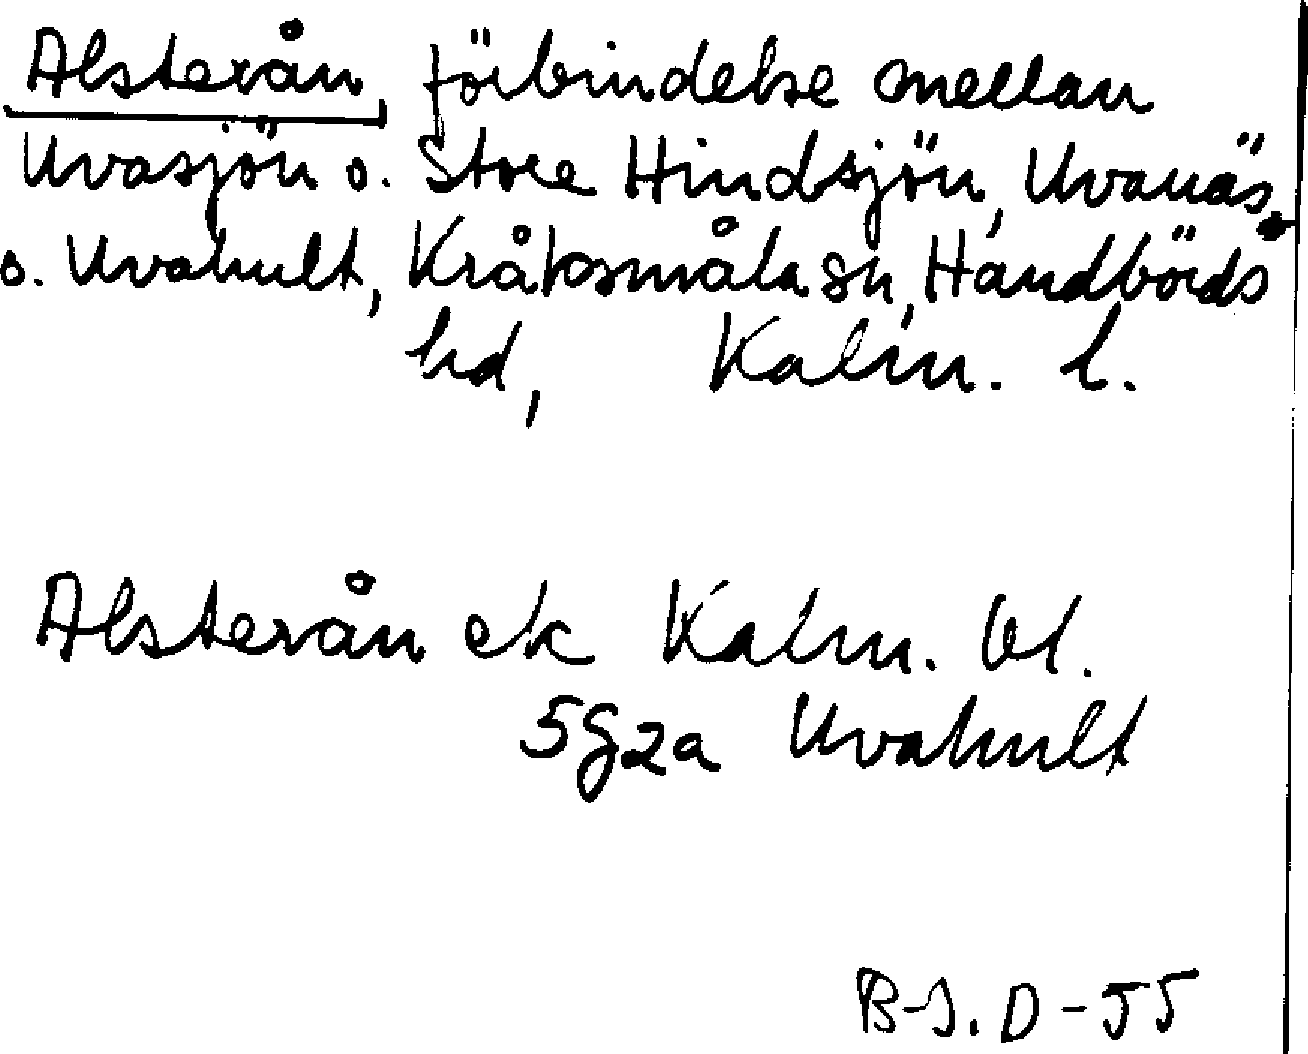 Alsterån, förbindelse mellan
Uvasjön o. Store Hindsjön, Uvanäs
o. Uvahult, Kråksmåla sn, Handbörds
hd, Kalm. l.
Alsterån ek Kalm. bl.
5g2a Uvahult
B-J. D-55